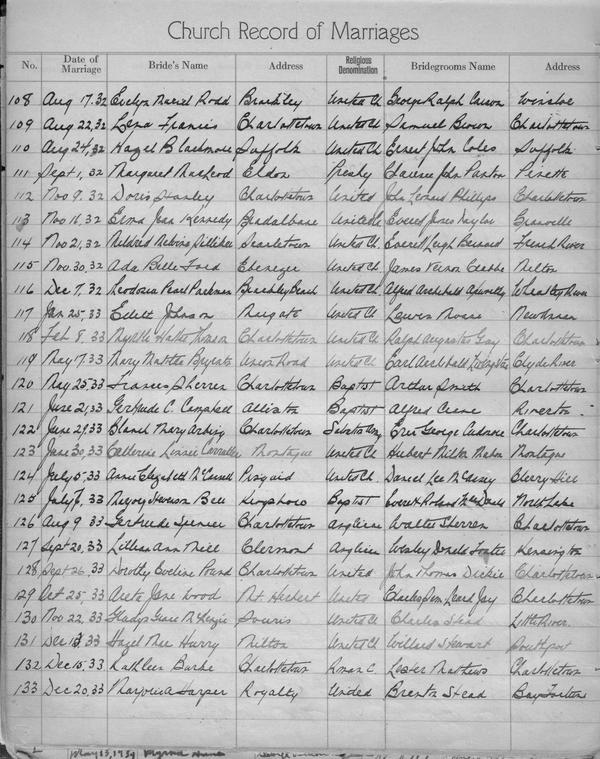 Church Record of Marriages
No. Date of Marriage Bride's Name Address Religious Denomination Bridegrooms Name Address
108 Aug 17, 32 Evelyn Muriel Rodd Brackley United Ch George Ralph Carson Winsloe
109 Aug 22, 32 Lena Francis Charlottetown United Ch Samuel Brown Charlottetown
110 Aug 24, 32 Hazel Blachmore Suffolk United Ch Ernest John Coles Suffolk
111 Sept 1, 32 Margaret MacLeod Eldon Presby Clarence John Panton Pinette
112 Nov 9, 32 Doris Stanley Charlottetown United John Leonard Phillips Charlottetown
113 Nov 16, 32 Erma Jean Kennedy Bradalbane United C Everett James Taylor Granville
114 Nov 21, 32 Mildred Searletown United Ch. Everett Leigh Bernard French River
115 Nov. 30, 32 Ada Belle Ford Ebenezer United Ch. James Vernon Crabbe Milton
116 Dec 7, 32 Theodosia Pearl Parkman Brackley Beach United Ch Alfred Archibald Wheatley River
117 Jan 25, 33 Edith Johnson Rusgate United Ch
118 Feb 8, 33 Myrtle Charlottetown United Ch Ralph Augustus Gay Charlottetown
119 May 17, 33 Mary Matilda Union Road United Ch Earl Archibald Livingston Clyde River
120 May 25, 33 Frances Sherren Charlottetown Baptist Arthur Smith Charlottetown
121 June 21, 33 Gertrude C. Campbell Alliston Baptist Alfred Crane Riverton
122 June 29, 33 Mary Charlottetown Salvation Army Eric George Cudmore Charlottetown
123 June 30, 33 Catherine Linnie Montague United Ch. Hubert Milton Montague
124 July 5, 33 Annie Elizabeth Pisquid United Ch. Daniel Lee Cherry Hill
125 July 7, 33 Marjory Bell Kingsboro Baptist Everett Roland North Lake
126 Aug 9, 33 Gertrude Spencer Charlottetown Anglican Walter Sherren Charlottetown
127 Sept 20, 33 Lillian Ann Mill Clermont Anglican Wesley Donald Kensington
128 Sept 26, 33 Dorothy Eveline Pound Charlottetown United John Thomas Dickie Charlottetown
129 Oct 25, 33 Jane Wood Mt Herbert United Charles Jay Charlottetown
130 Nov 22, 33 Gladys Grace McKenzie Souris United Ch Charles Stead Little River
131 Dec 13, 33 Hazel Mae Hurry Milton United Ch Willard Stewart Southport
132 Dec 15, 33 Kathleen Burke Charlottetown Roman C. Lester Mathews Charlottetown
133 Dec 20, 33 Marjorie A Harper Royalty United Brenton Stead Bay Fortune
May 13, 1934 Myrna